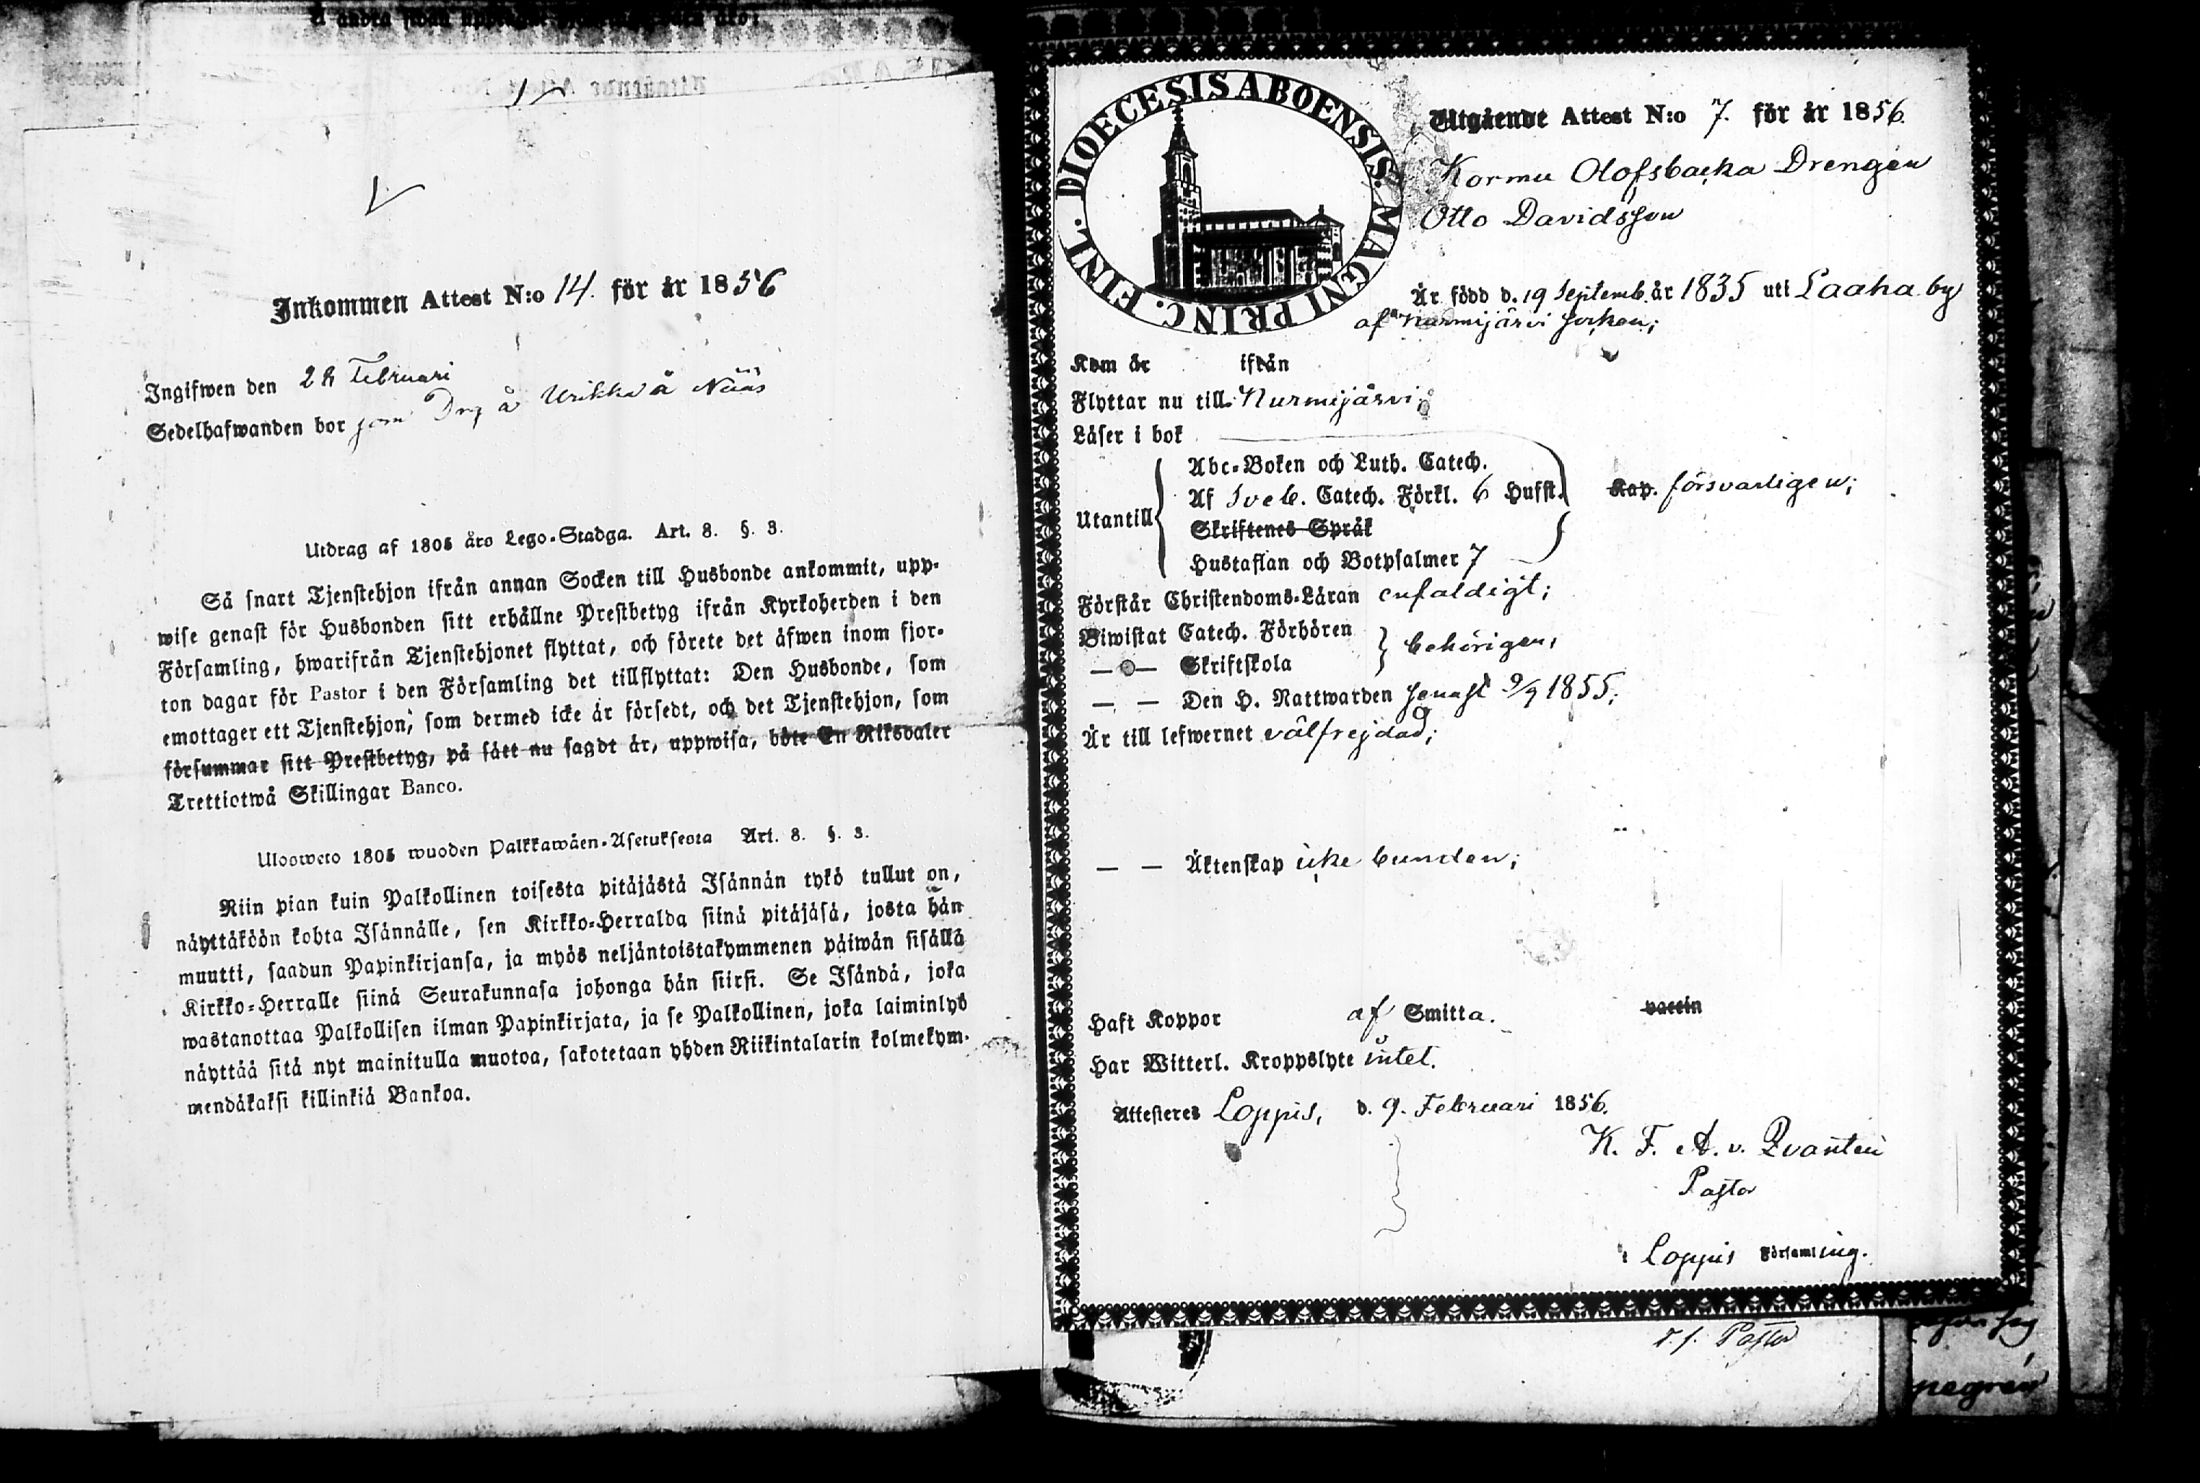 Inkommen Attest N:o 14. för år 1856
Ingifwen den 28 Februari
Sedelhafwanden bor som Drg å Urikkala Nääs
Utdrag af 1805 års Lego-Stadga. Art. 8. §. 3.
Så snart Tjenstehjon ifrån annan Socken till Husbonde ankommit, upp-
wise genast för Husbonden sitt erhållne Prestbetyg ifrån Kyrkoherden i den
Församling, hwarifrån Tjenstehjonet flyttat, och förete det äfwen inom fjor-
ton dagar för Pastor i den Församling det tillflyttat: Den Husbonde, som
emottager ett Tjenstehjon, som dermed icke är försedt, och det Tjenstehjon, som
försummar sitt Prestbetyg, på sätt nu sagdt är, uppwisa, böte En Riksdaler
Trettiotwå Skillingar Banco.
Ulosweto 1805 wuoden Palkkawäen-Asetuksesta Art. 8. §. 3.
Niin pian kuin Palkollinen toisesta pitäjästä Isännän tykö tullut on,
näyttäköön kohta Isännälle, sen Kirkko-Herralda siinä pitäjäsä, josta hän
muutti, saadun Papinkirjansa, ja myös neljäntoistakymmenen päiwän sisällä
Kirkko-Herralle siinä Seurakunnasa johonga hän siirsi. Se Isändä, joka
wastanottaa Palkollisen ilman Papinkirjata, ja se Palkollinen, joka laiminlyö
näyttää sitä nyt mainitulla muotoa, sakotetaan yhden Riikintalarin kolmekym-
mendäkaksi killinkiä Bankoa.
DIOECESIS ABOENSIS. MAGNI PRINC. FINL.
Utgående Attest N:o 7. för år 1856.
Kormu Olofsbacka Drengen
Otto Davidsson
Är född d. 19 Septemb. år 1835 uti Laaha by
af Nurmijärvi socken;
Kom år ifrån
Flyttar nu till Nurmijärvi;
Läser i bok
Abc-Boken och Luth. Catech.
Utantill Af Sveb. Catech. Förkl. 6 Hufst. Kap. försvarligen;
Skriftenes Språk
Hustaflan och Botpsalmer 7
Förstår Christendoms-Läran enfaldigt;
Biwistat Catech. Förhören behörigen;
— — Skriftskola
— — Den H. Nattwarden senast 9/9 1855;
Är till lefwernet välfrejdad;
— — Äktenskap icke bunden;
Haft Koppor af Smitta. vaccin
Har Witterl. Kroppslyte intet.
Attesteres Loppis, d. 9. Februari 1856.
K. F. A. v. Qvanten
Pastor
i Loppis Församling.
v. f. Pastor